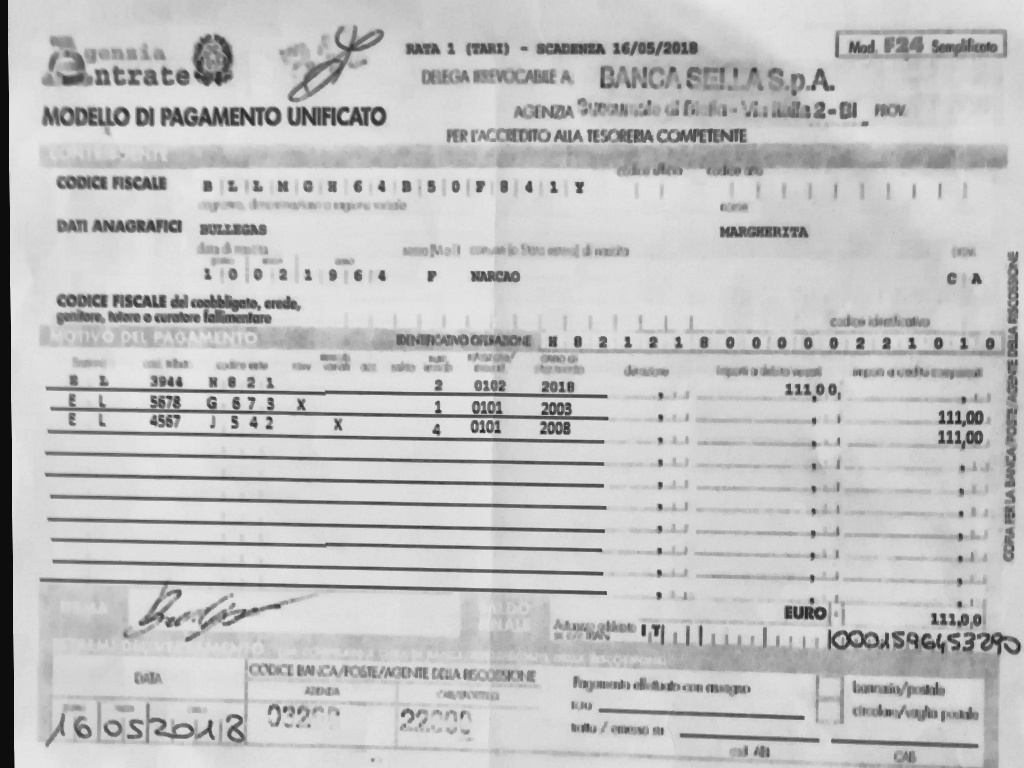 Agenzia
Entrate
RATA 1 (TARI) - SCADENZA 16/05/2018
Mod. F24 Semplificato
DELEGA IRREVOCABILE A: BANCA SELLA S.p.A.
MODELLO DI PAGAMENTO UNIFICATO
AGENZIA di Via Italia 2 - BI PROV.
PER L'ACCREDITO ALLA TESORERIA COMPETENTE
CONTRIBUENTE
codice ufficio codice atto
CODICE FISCALE B L L M G H 6 4 B 5 0 F 8 4 1 Y
cognome, denominazione o ragione sociale nome
DATI ANAGRAFICI BULLEGAS MARGHERITA
data di nascita sesso (M o F) comune (o Stato estero) di nascita prov.
giorno mese anno
1 0 0 2 1 9 6 4 F NARCAO C A
CODICE FISCALE del coobbligato, erede,
genitore, tutore o curatore fallimentare
codice identificativo
MOTIVO DEL PAGAMENTO IDENTIFICATIVO OPERAZIONE H 8 2 1 2 1 8 0 0 0 0 0 2 2 1 0 1 0
Sezione cod. tributo codice ente ravv. immob. variati acc. saldo num. immob. rateazione/mese rif. anno di riferimento detrazione importi a debito versati importi a credito compensati
E L 3944 H 8 2 1 2 0102 2018 111,00
E L 5678 G 6 7 3 X 1 0101 2003 111,00
E L 4567 J 5 4 2 X 4 0101 2008 111,00
FIRMA
SALDO FINALE
EURO 111,0,0
Autorizzo addebito su c/c IBAN I T 10001596453290
ESTREMI DEL VERSAMENTO
DATA
CODICE BANCA/POSTE/AGENTE DELLA RISCOSSIONE
AZIENDA CAB/SPORTELLO
16 05 2018
Pagamento effettuato con assegno
bancario/postale
circolare/vaglia postale
n.ro
tratto / emesso su
cod. ABI CAB
COPIA PER LA BANCA/POSTE/AGENTE DELLA RISCOSSIONE